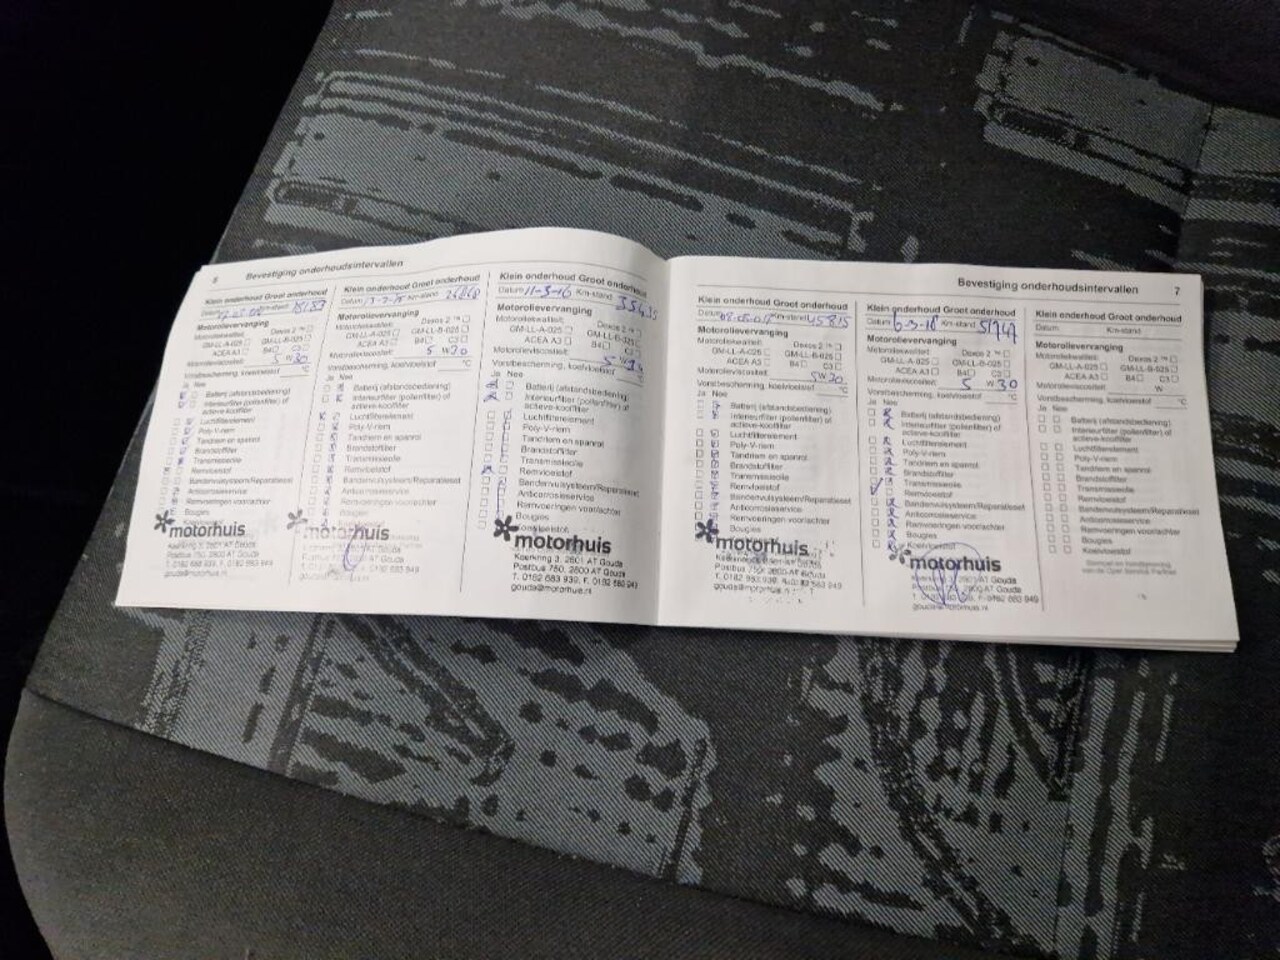 6 Bevestiging onderhoudsintervallen
Klein onderhoud Groot onderhoud
Datum Km-stand
Motorolievervanging
Motoroliekwaliteit: Dexos 2 ™ ☐
GM-LL-A-025 ☐ GM-LL-B-025 ☐
ACEA A3 ☐ B4 ☐ C3 ☐
Motorolieviscositeit: 5 W 30
Vorstbescherming, koelvloeistof °C
Ja Nee
Batterij (afstandsbediening)
Interieurfilter (pollenfilter) of
actieve-koolfilter
Luchtfilterelement
Poly-V-riem
Tandriem en spanrol
Brandstoffilter
Transmissieolie
Remvloeistof
Anticorrosieservice
Remvoeringen voor/achter
Bougies
motorhuis
Koerkring 3, 2801 AT Gouda
Postbus 750, 2800 AT Gouda
gouda@motorhuis.nl
Klein onderhoud Groot onderhoud
Datum Km-stand
Motorolievervanging
Motoroliekwaliteit: Dexos 2 ™ ☐
GM-LL-A-025 ☐ GM-LL-B-025 ☐
ACEA A3 ☐ B4 ☐ C3 ☐
Motorolieviscositeit: 5 W 30
Vorstbescherming, koelvloeistof °C
Ja Nee
Batterij (afstandsbediening)
Interieurfilter (pollenfilter) of
actieve-koolfilter
Luchtfilterelement
Poly-V-riem
Tandriem en spanrol
Brandstoffilter
Transmissieolie
Remvloeistof
Bandenvulsysteem/Reparatieset
Anticorrosieservice
Remvoeringen voor/achter
Bougies
motorhuis
Klein onderhoud Groot onderhoud
Datum 11-3-16 Km-stand 35435
Motorolievervanging
Motoroliekwaliteit: Dexos 2 ™ ☐
GM-LL-A-025 ☐ GM-LL-B-025 ☐
ACEA A3 ☐ B4 ☐ C3 ☐
Motorolieviscositeit: 5 W
Vorstbescherming, koelvloeistof °C
Ja Nee
Batterij (afstandsbediening)
Interieurfilter (pollenfilter) of
actieve-koolfilter
Luchtfilterelement
Poly-V-riem
Tandriem en spanrol
Brandstoffilter
Transmissieolie
Remvloeistof
Bandenvulsysteem/Reparatieset
Anticorrosieservice
Remvoeringen voor/achter
Bougies
Koelvloeistof
motorhuis
Koerkring 3, 2801 AT Gouda
Postbus 750, 2800 AT Gouda
T. 0182 683 939, F. 0182 683 949
gouda@motorhuis.nl
Bevestiging onderhoudsintervallen 7
Klein onderhoud Groot onderhoud
Datum Km-stand 45815
Motorolievervanging
Motoroliekwaliteit: Dexos 2 ™ ☐
GM-LL-A-025 ☐ GM-LL-B-025 ☐
ACEA A3 ☐ B4 ☐ C3 ☐
Motorolieviscositeit: 5W30
Vorstbescherming, koelvloeistof °C
Ja Nee
Batterij (afstandsbediening)
Interieurfilter (pollenfilter) of
actieve-koolfilter
Luchtfilterelement
Poly-V-riem
Tandriem en spanrol
Brandstoffilter
Transmissieolie
Remvloeistof
Bandenvulsysteem/Reparatieset
Anticorrosieservice
Remvoeringen voor/achter
Bougies
motorhuis
Postbus 750, 2800 AT Gouda
gouda@motorhuis.nl
Klein onderhoud Groot onderhoud
Datum Km-stand 51747
Motorolievervanging
Motoroliekwaliteit: Dexos 2 ™ ☐
GM-LL-A-025 ☐ GM-LL-B-025 ☐
ACEA A3 ☐ B4 ☐ C3 ☐
Motorolieviscositeit: 5 W 30
Vorstbescherming, koelvloeistof °C
Ja Nee
Batterij (afstandsbediening)
Interieurfilter (pollenfilter) of
actieve-koolfilter
Luchtfilterelement
Poly-V-riem
Tandriem en spanrol
Brandstoffilter
Transmissieolie
Remvloeistof
Bandenvulsysteem/Reparatieset
Anticorrosieservice
Remvoeringen voor/achter
Bougies
Koelvloeistof
motorhuis
gouda@motorhuis.nl
Klein onderhoud Groot onderhoud
Datum Km-stand
Motorolievervanging
Motoroliekwaliteit: Dexos 2 ™ ☐
GM-LL-A-025 ☐ GM-LL-B-025 ☐
ACEA A3 ☐ B4 ☐ C3 ☐
Motorolieviscositeit: W
Vorstbescherming, koelvloeistof °C
Ja Nee
Batterij (afstandsbediening)
Interieurfilter (pollenfilter) of
actieve-koolfilter
Luchtfilterelement
Poly-V-riem
Tandriem en spanrol
Brandstoffilter
Transmissieolie
Remvloeistof
Bandenvulsysteem/Reparatieset
Anticorrosieservice
Remvoeringen voor/achter
Bougies
Koelvloeistof
Stempel en handtekening
van de Opel Service Partner